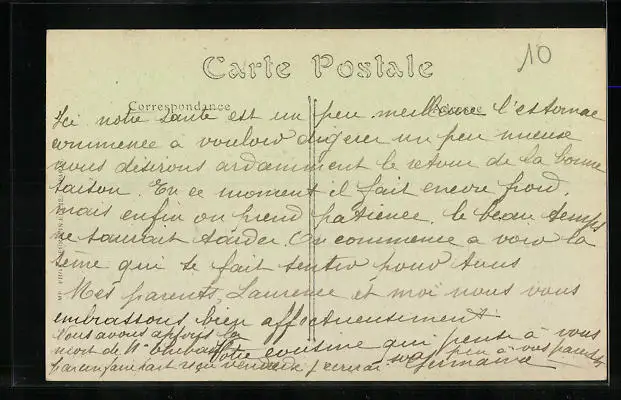 10
Carte Postale
Correspondance
Adresse
Ici notre santé est un peu meilleure l'estomac
commence a vouloir digérer un peu mieuse
nous désirons ardamment le retour de la bonne
saison. En ce moment il fait encore froid,
mais enfin on prend patience, le beau temps
ne saurait tarder. On commence a voir la
qui se fait sentir pour tous
Mes parents, Laurence et moi nous vous
embrassons bien affectueusement
Votre cousine qui pense à vous
Germaine
Nous avons appris la
mort de Mr
par un faire part reçu vendredi j'écrirai peu à vos parents